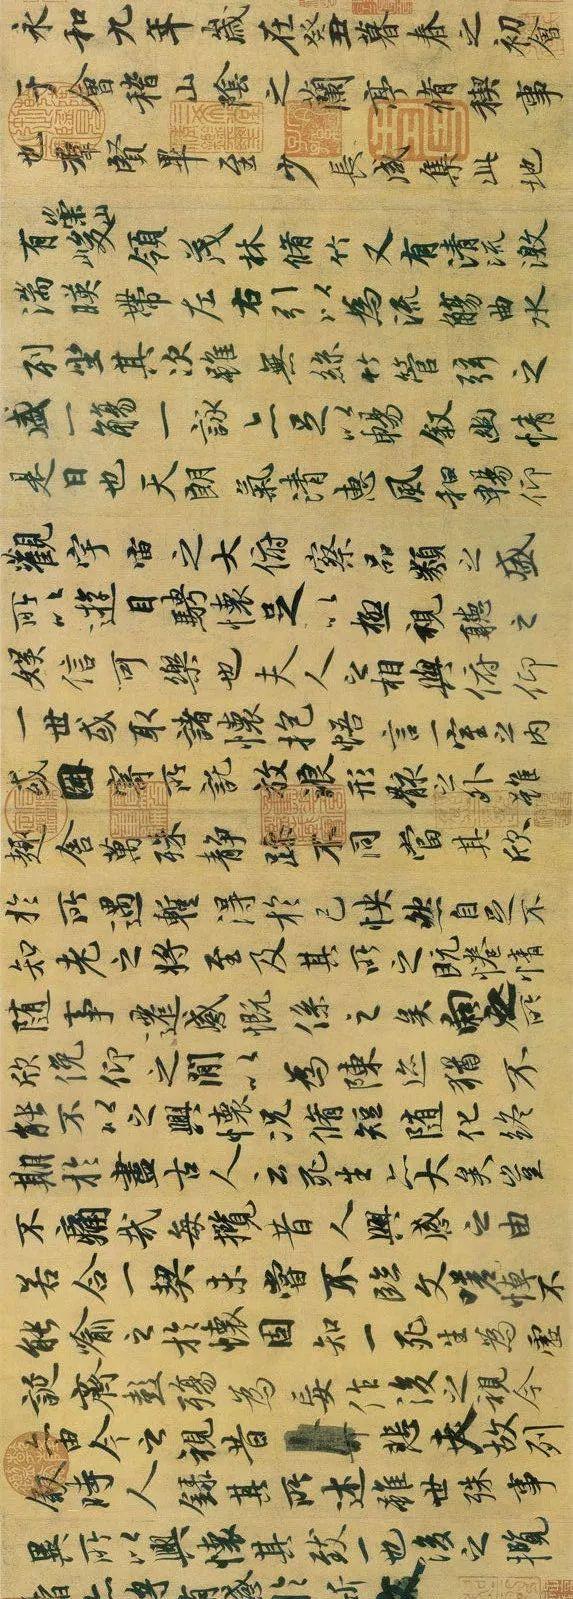 永和九年歲在癸丑暮春之初會
于會稽山陰之蘭亭脩稧事
也羣賢畢至少長咸集此地
有崇山峻領茂林脩竹又有清流激
湍暎帶左右引以為流觴曲水
列坐其次雖無絲竹管弦之
盛一觴一詠亦足以暢敘幽情
是日也天朗氣清惠風和暢仰
觀宇宙之大俯察品類之盛
所以遊目騁懷足以極視聽之
娛信可樂也夫人之相與俯仰
一世或取諸懷抱悟言一室之內
或因寄所託放浪形骸之外雖
趣舍萬殊靜躁不同當其欣
於所遇暫得於己怏然自足不
知老之將至及其所之既惓情
隨事遷感慨係之矣向之所
欣俛仰之閒以為陳迹猶不
能不以之興懷況脩短隨化終
期於盡古人云死生亦大矣豈
不痛哉每攬昔人興感之由
若合一契未嘗不臨文嗟悼不
能喻之於懷固知一死生為虛
誕齊彭殤為妄作後之視今
亦由今之視昔悲夫故列
敘時人錄其所述雖世殊事
異所以興懷其致一也後之攬
者亦將有感於斯